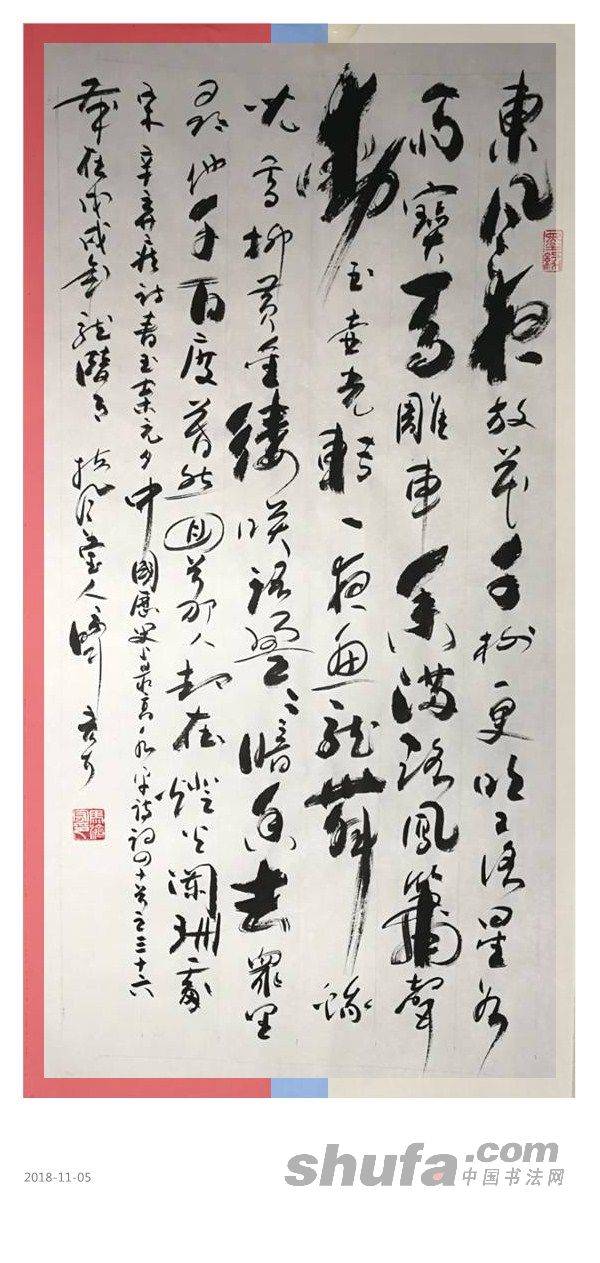 東風夜放花千樹更吹落星如
雨寶馬雕車香滿路鳳簫聲
動玉壺光轉一夜魚龍舞蛾
兒雪柳黃金縷笑語盈〻暗香去眾里
尋他千百度驀然回首那人却在燈火闌珊處
宋辛棄疾詩青玉案元夕中國歷史上最高水平詩詞四十首之三十六
歲在戊戌年
2018-11-05
shufa.com
中国书法网